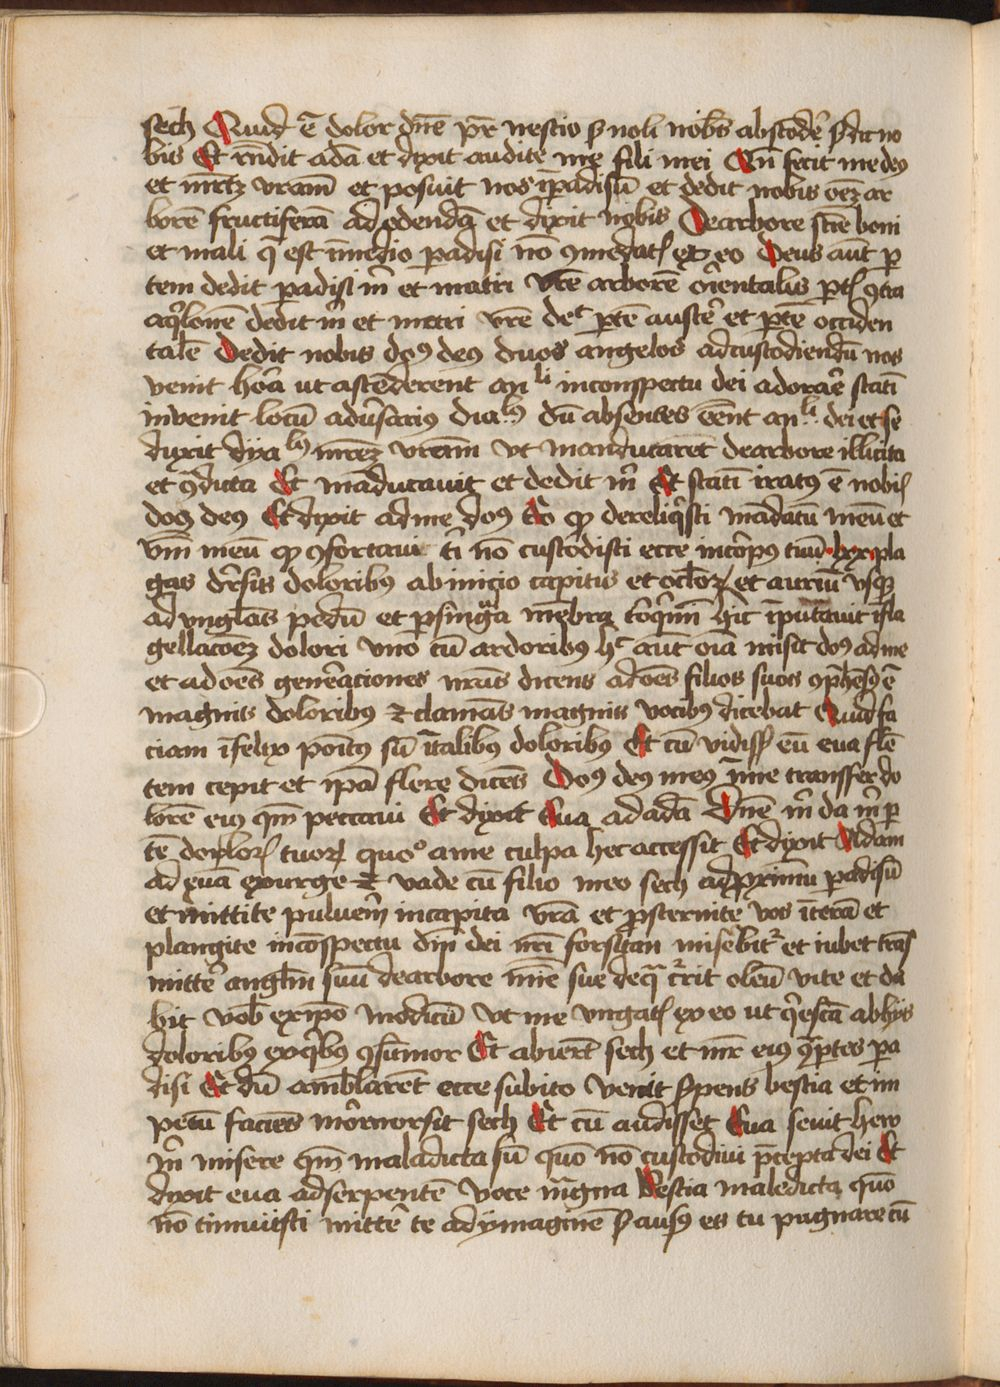 sech Quid ē dolor dn̄e pr̄ nescio ꝫ noli nobis abscōdẽ ꝫ dic no
bis Et rn̄dit adā et dyxit audite me fili mei Cū fecit me deꝰ
et mr̄eꝫ vr̄am et posuit nos ī padisū et dedit nobis oēꝫ ar
borē fructiferā ad edendā et dixit nobis De arbore scīe boni
et mali q̄ est ī medio padisi nō ꝯmedatꝭ ex eo Deus aūt p
tem dedit padisi m̄ et matri vr̄e arborē oriental' ptꝭ ꝯtra
aqꝰlonē dedit m̄ et matri vr̄e det ptē austẽ et ptē occiden
talē Dedit nobis dn̄s deꝰ duos angelos ad custodiendū nos
venit hora ut ascēderent an li in conspectu dei adoraē statī
invenit locū adūsariꝰ dia lꝰ dū absentes eēnt an li dei et se
duxit dya lꝰ mr̄eꝫ vr̄am vt manducaret de arbore illicita
et ꝯducta Et māducavit et dedit m̄ Et statī iratꝰ ē nobiꝭ
dn̄s deꝰ Et dyxit ad me dn̄s Eo qꝫ dereliqͥsti mādatū meū et
vm̄ meū qꝫ ꝯfortavi t̄ nō custodisti ecce in corpꝰ tuū lxx pla
gas dīsis doloribꝰ ab inicio capitis et oclorꝫ et auriū vsqꝫ
ad vnglas pedū et p singla mēbra hic īputavit ī fla
gellacōeꝫ dolori vno cū ardoribꝰ hc aūt oīa misit dn̄s ad me
et ad oēs generaciones nr̄as dicens ad oēs filios suos ꝯp̄hēsꝰ ē
magnis doloribꝰ ⁊ clamās magnis vocibꝰ dicebat Quid fa
ciam īfelyx poītꝰ sū ī talibꝰ doloribꝰ Et cū vidisſꝫ eū eva flē
tem cepit et ipā flere dicēs Dn̄s deꝰ meꝰ ī me transfer do
lorē eiꝰ qm̄ peccavi Et dyxit Eua ad adā Dn̄e m̄ da m̄ p
tē dolorꝭ tuorꝫ quoº a me culpa hec accessit Et dyxit Adam
ad euā exurge ⁊ vade cū filio meo sech ad pximū padisū
et mittite puluem̄ in capita vr̄a et psternite vos ī terā et
plangite in cōspectu dn̄i dei nr̄i forsitan miseb̄itr et iubet trās
mittẽ anglm̄ suū de arbore mīe sue de qͣ c̄rit oleū vite et da
bit vob̄ ex ip̄o modicū vt me vngatꝭ ex eo ut qͥescā ab hijs
doloribꝰ ex qͥbꝰ ꝯsūmor Et abierūt sech et mr̄ eiꝰ ꝯ ptes pa
disi Et dū amblarēt ecce subito venit ꝫpens bestia et im
petū faciēs mōmorsit sech Et cū audisset Eua fevit heu
m̄ misere qm̄ maladicta sū quō nō custodivi p̄cepta dei Et
dyxit eua ad serpentē voce magna Bestia maledicta quō
nō timuisti mittẽ te ad ymaginē ꝫ ausꝰ es tu pugnare cū